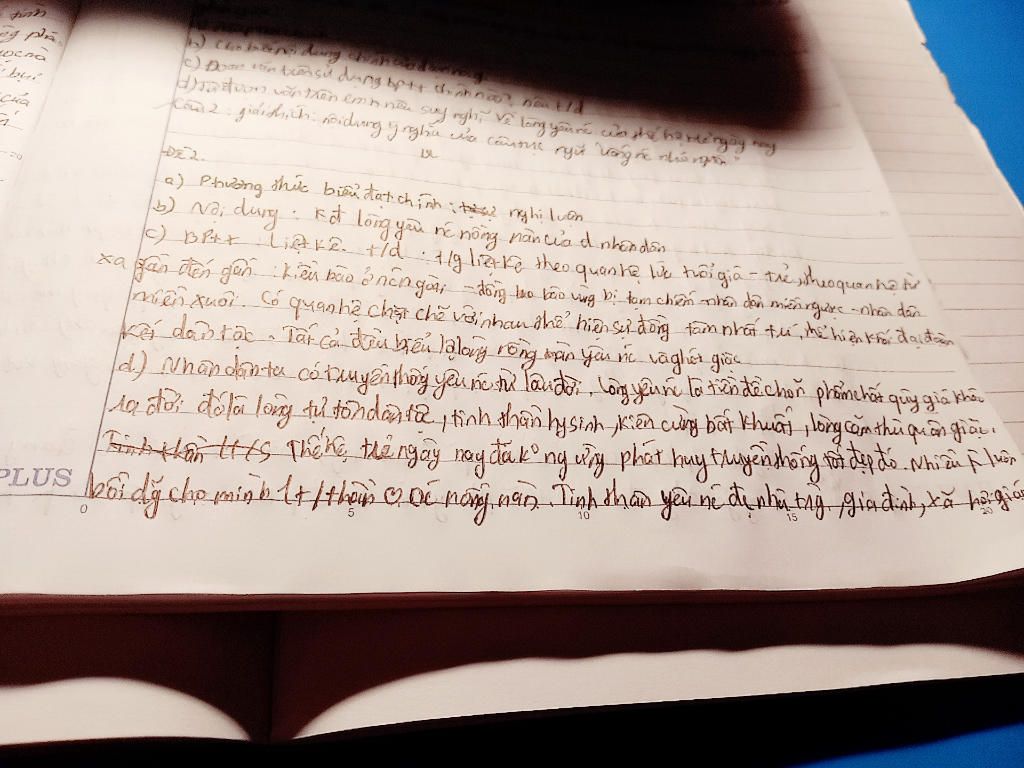 tính
b) Cho biết nội dung chính
c) Đoạn văn trên sử dụng bptt chính nào? nêu t/d
d) Từ đoạn văn trên em nêu suy nghĩ về lòng yêu nc của thế hệ trẻ ngày nay
Câu 2: giải thích: nội dung ý nghĩa của câu tục ngữ "uống nc nhớ nguồn"
Đề 2.
a) Phương thức biểu đạt chính: nghị luôn
b) Nội dung: kđ lòng yêu nc nồng nàn của nhân dân
c) BPTT liệt kê t/d: t/g liệt kê theo quan hệ lứa tuổi già - trẻ, theo quan hệ từ
xa gần đến gần: kiều bào ở nc ngoài - đồng bào vùng bị tạm chiếm - nhân dân miền ngược - nhân dân
miền xuôi. Có quan hệ chặt chẽ với nhau thể hiện sự đồng tâm nhất trí, thể hiện khối đại đoàn
kết dân tộc. Tất cả đều biểu lộ lòng nồng nàn yêu nc và ghét giặc
d.) Nhân dân ta có truyền thống yêu nc từ lâu đời. Lòng yêu nc là tiền đề cho n phẩm chất quý giá khác
ra đời đó là lòng tự tôn dân tộc, tinh thần hy sinh, kiên cường bất khuất, lòng căm thù quân giặc.
Tinh thần Thế hệ trẻ ngày nay đã k° ngừng phát huy truyền thống tốt đẹp đó. Nhiều luôn
bồi dg cho mình 1 t/thần ♡ nc nồng nàn. Tinh thần yêu nc đc nhà trg, gia đình, xã hội giáo
PLUS
0 5 10 15 20